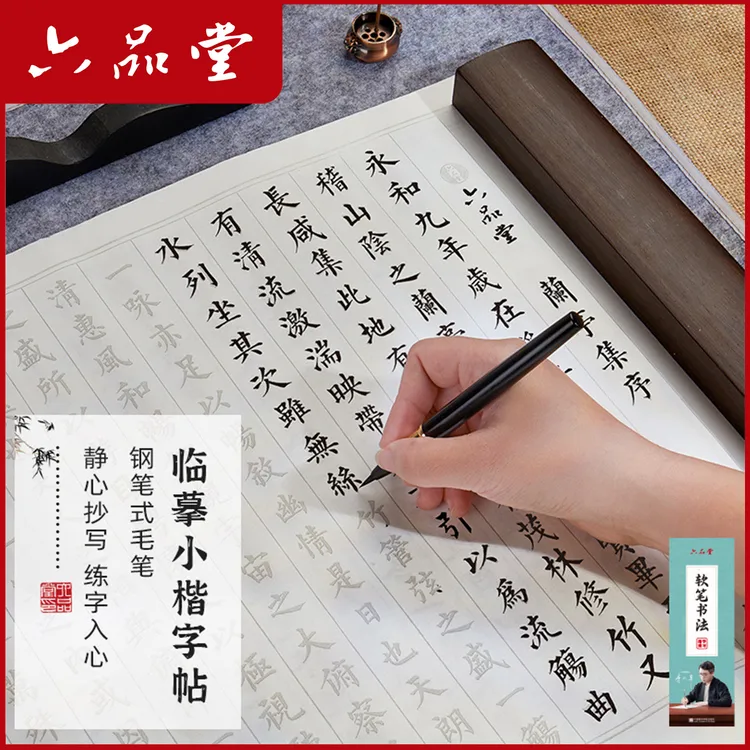 六品堂
蘭亭集序
六品堂
永和九年歲在
稽山陰之蘭亭
畢
長咸集此地有
茂林修竹又
有清流激湍映帶
引以爲流觴曲
水列坐其次雖無絲竹管弦之盛一觴
一詠亦足以暢敘幽情是日也天朗
清惠風和
宙之大俯察
之盛所以
極視
临摹小楷字帖
钢笔式毛笔
静心抄写 练字入心
六品堂
软笔书法